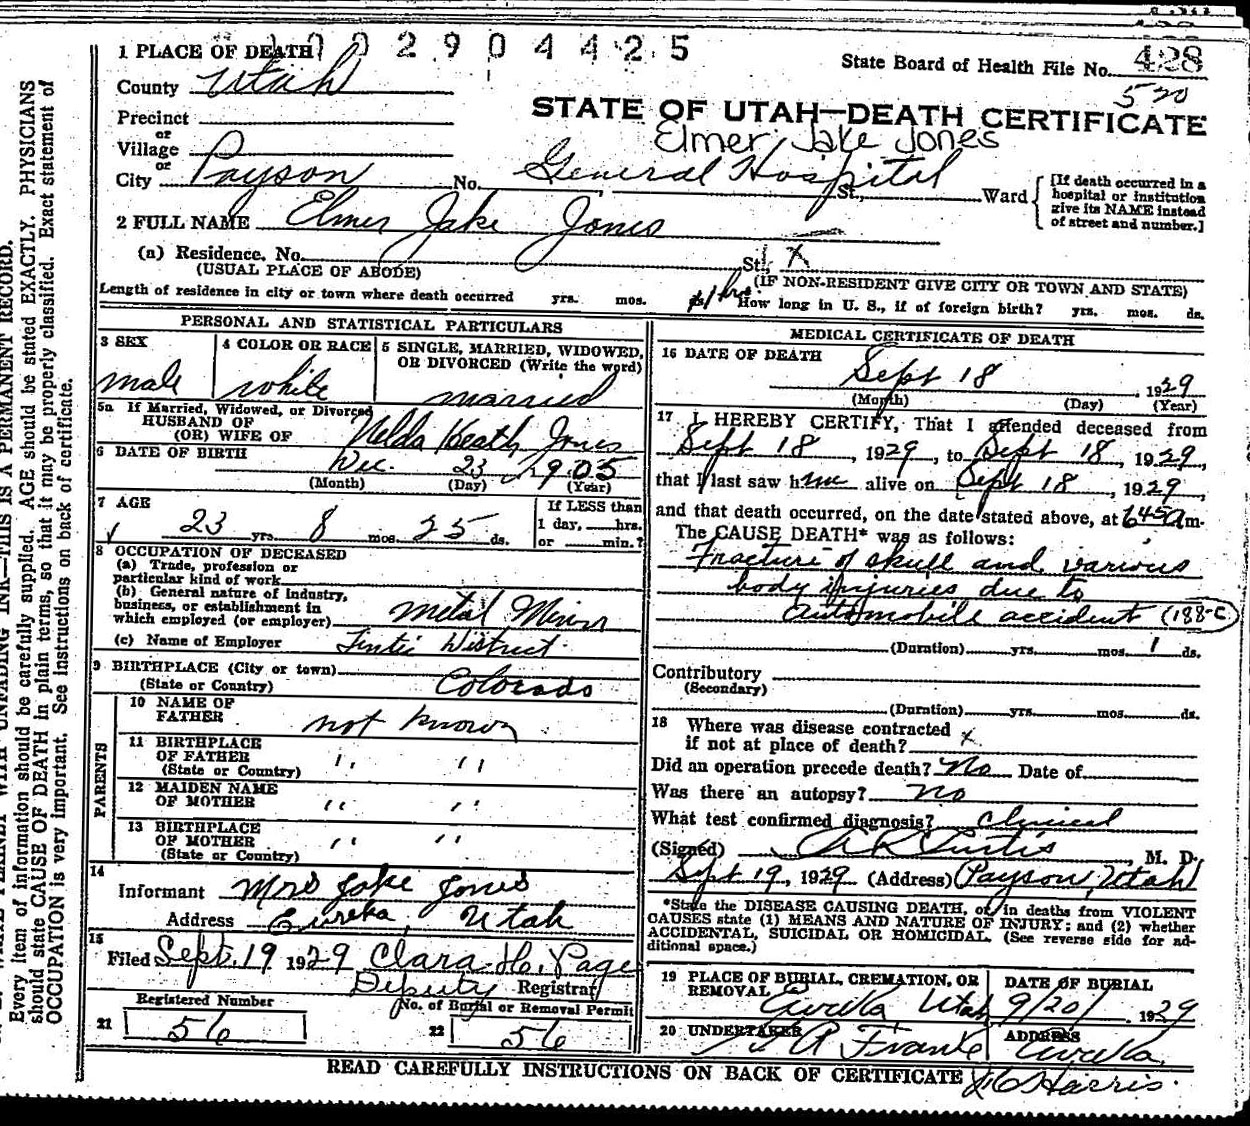 1 PLACE OF DEATH 1 0 0 2 9 0 4 4 2 5
State Board of Health File No. 428
County Utah
520
STATE OF UTAH—DEATH CERTIFICATE
Precinct
Elmer Jake Jones
or
Village
or
City Payson No. General Hospital St., Ward
[If death occurred in a
hospital or institution
give its NAME instead
of street and number.]
2 FULL NAME Elmer Jake Jones
(a) Residence. No. St. X
(USUAL PLACE OF ABODE)
(IF NON-RESIDENT GIVE CITY OR TOWN AND STATE)
Length of residence in city or town where death occurred yrs. mos. 1 hr. How long in U. S., if of foreign birth? yrs. mos. ds.
PERSONAL AND STATISTICAL PARTICULARS
3 SEX
male
4 COLOR OR RACE
white
5 SINGLE, MARRIED, WIDOWED,
OR DIVORCED (Write the word)
married
5a If Married, Widowed, or Divorced
HUSBAND OF
(OR) WIFE OF Nelda Heath Jones
6 DATE OF BIRTH Dec. 23 1905
(Month) (Day) (Year)
7 AGE
23 yrs. 8 mos. 25 ds.
If LESS than
1 day, hrs.
or min.?
8 OCCUPATION OF DECEASED
(a) Trade, profession or
particular kind of work
(b) General nature of industry,
business, or establishment in
which employed (or employer) Metal Miner
(c) Name of Employer Tintic District
9 BIRTHPLACE (City or town)
(State or Country) Colorado
PARENTS
10 NAME OF
FATHER not known
11 BIRTHPLACE
OF FATHER " "
(State or Country)
12 MAIDEN NAME
OF MOTHER " "
13 BIRTHPLACE
OF MOTHER " "
(State or Country)
14
Informant Mrs Jake Jones
Address Eureka, Utah
15
Filed Sept. 19 1929 Clara H. Page
Deputy Registrar
Registered Number
21 56
No. of Burial or Removal Permit
22 56
MEDICAL CERTIFICATE OF DEATH
16 DATE OF DEATH
Sept 18, 1929
(Month) (Day) (Year)
17 I HEREBY CERTIFY, That I attended deceased from
Sept 18, 1929, to Sept 18, 1929,
that I last saw him alive on Sept 18, 1929,
and that death occurred, on the date stated above, at 645a m.
The CAUSE DEATH* was as follows:
Fracture of skull and various
body injuries due to
automobile accident (188-c)
(Duration) yrs. mos. 1 ds.
Contributory
(Secondary)
(Duration) yrs. mos. ds.
18 Where was disease contracted
if not at place of death? x
Did an operation precede death? No Date of
Was there an autopsy? no
What test confirmed diagnosis? Clinical
(Signed) A R Curtis, M. D.
Sept 19, 1929 (Address) Payson, Utah
*State the DISEASE CAUSING DEATH, or, in deaths from VIOLENT
CAUSES state (1) MEANS AND NATURE OF INJURY; and (2) whether
ACCIDENTAL, SUICIDAL OR HOMICIDAL. (See reverse side for ad-
ditional space.)
19 PLACE OF BURIAL, CREMATION, OR
REMOVAL Eureka, Utah
DATE OF BURIAL
9/20/, 1929
20 UNDERTAKER
A Franke
ADDRESS
Eureka
READ CAREFULLY INSTRUCTIONS ON BACK OF CERTIFICATE
Harris.
Every item of information should be carefully supplied. AGE should be stated EXACTLY. PHYSICIANS
should state CAUSE OF DEATH in plain terms, so that it may be properly classified. Exact statement of
OCCUPATION is very important. See instructions on back of certificate.
WITH UNFADING INK—THIS IS A PERMANENT RECORD.